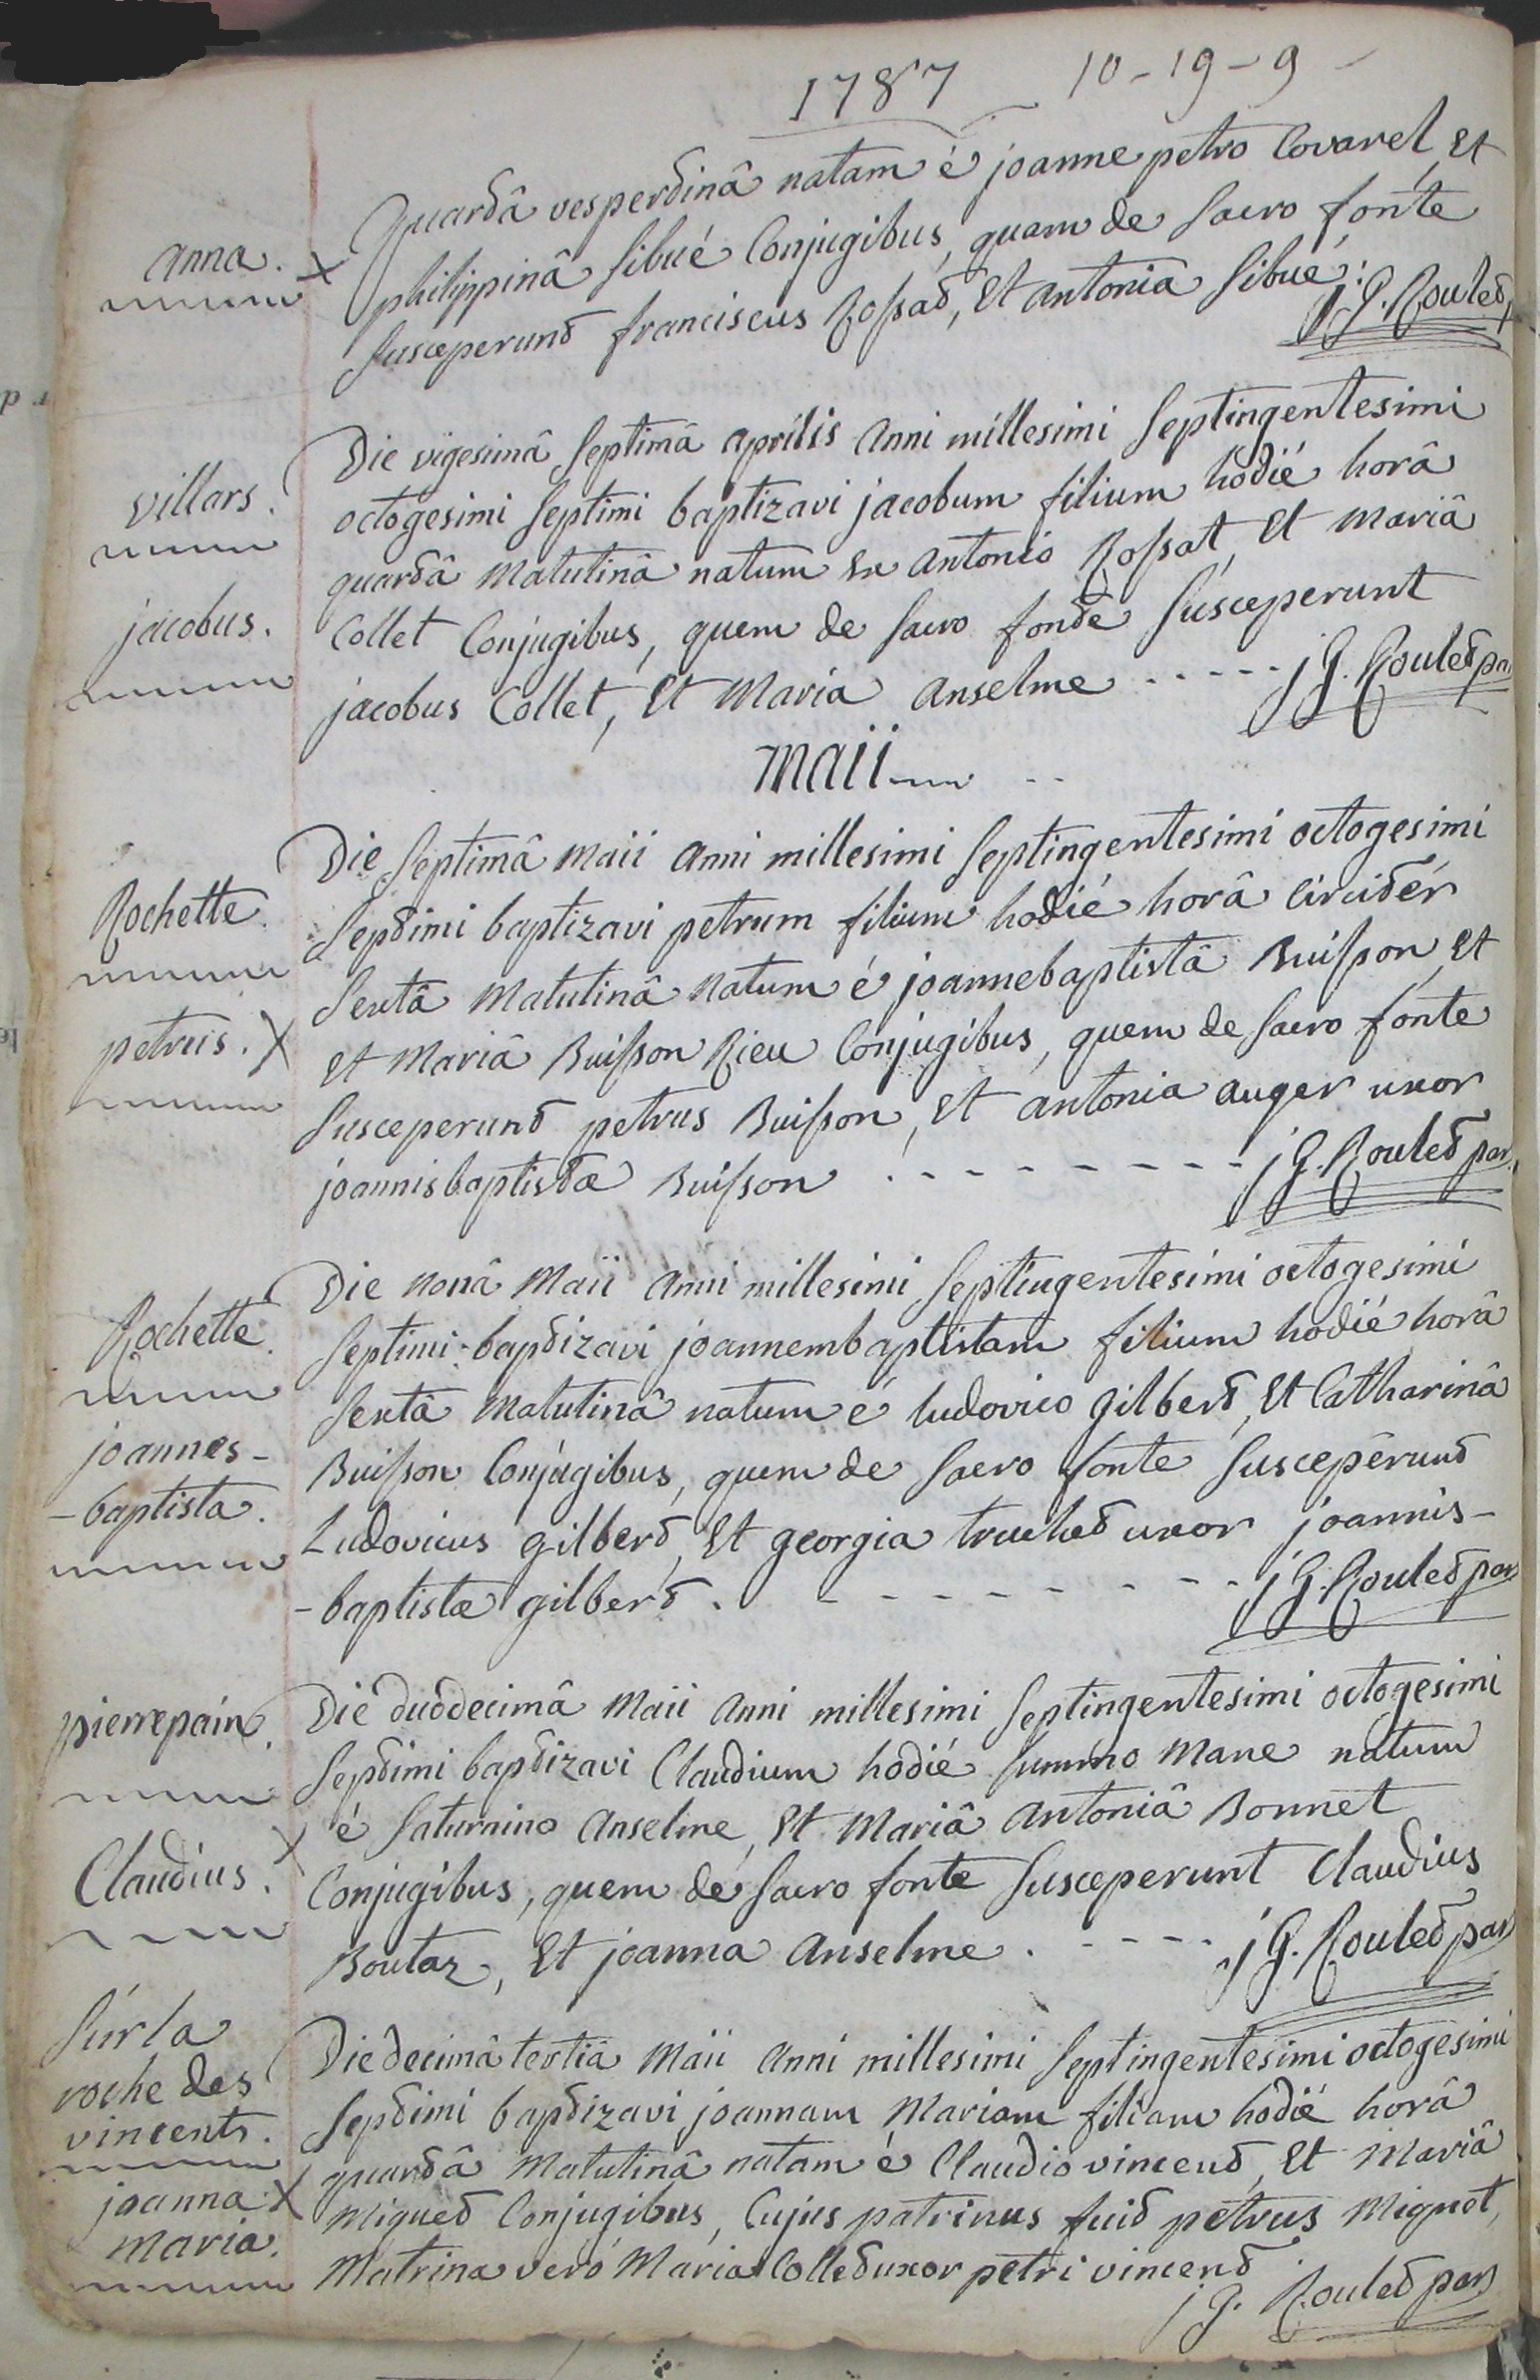 1787 10-19-9
quartâ vespertinâ natam é joanne petro Covarel, Et
anna.
philippinâ Sibué Conjugibus, quam de Sacro fonte
Susceperunt franciscus Rossat, Et antonia Sibué. j G. Roulet
Die vigesimâ Septimâ aprilis anni millesimi Septingentesimi
villars.
octogesimi Septimi baptizavi jacobum filium hodié horâ
quartâ Matutinâ natum Ex antonio Rossat, Et Mariâ
jacobus.
Collet Conjugibus, quem de Sacro fonte Susceperunt
jacobus Collet, Et Maria anselme ----- j G. Roulet par
Maii
Die Septimâ Maii anni millesimi Septingentesimi octogesimi
Rochette.
Septimi baptizavi petrum filium hodié horâ Circiter
Sextâ Matutinâ natum é joannebaptistâ Buisson, Et
petrus.
Et Mariâ Buisson Rieu Conjugibus, quem de Sacro fonte
Susceperunt petrus Buisson, Et antonia auger uxor
joannisbaptistæ Buisson. -------- j G. Roulet par
Die nonâ Maii anni millesimi Septingentesimi octogesimi
Rochette.
Septimi baptizavi joannembaptistam filium hodié horâ
Sextâ Matutinâ natum é Ludovico gilbert, Et Catharinâ
joannes-
Buisson Conjugibus, quem de Sacro fonte Susceperunt
-baptista.
Ludovicus gilbert, Et georgia truchet uxor joannis-
-baptistæ gilbert. ------- j G. Roulet par
pierrepain.
Die duodecimâ Maii anni millesimi Septingentesimi octogesimi
Septimi baptizavi Claudium hodié Summo Mane natum
é Saturnino Anselme, Et Mariâ Antoniâ Bonnet
Claudius.
Conjugibus, quem de Sacro fonte Susceperunt Claudius
Boutaz, Et joanna Anselme. ---- j G. Roulet par
Sur la
roche des
vincents.
Die decimâ tertiâ Maii anni millesimi Septingentesimi octogesimi
Septimi baptizavi joannam Mariam filiam hodié horâ
quartâ Matutinâ natam é Claudio vincend, Et Mariâ
joanna
Maria.
Miquet Conjugibus, Cujus patrinus fuit petrus Mignot,
Matrina veró Maria Collet uxor petri vincend
j G. Roulet par